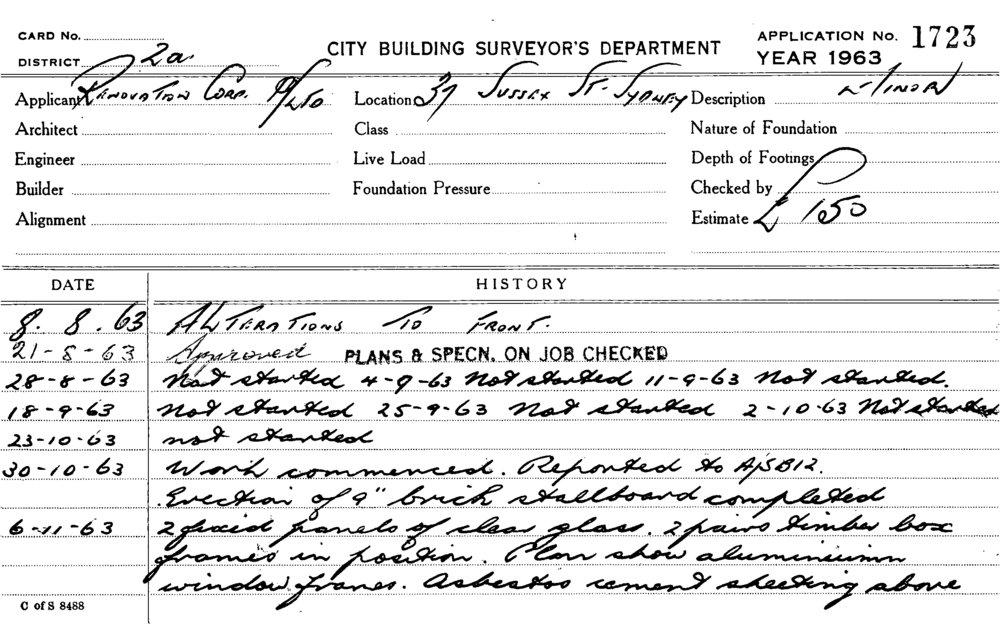 CARD No.
DISTRICT 2a
CITY BUILDING SURVEYOR'S DEPARTMENT
APPLICATION No. 1723
YEAR 1963
Applicant Renovation Corp. P/L
Location 37 Sussex St. Sydney
Description Minor
Architect
Class
Nature of Foundation
Engineer
Live Load
Depth of Footings
Builder
Foundation Pressure
Checked by
Alignment
Estimate £ 150
DATE HISTORY
8. 8. 63 ALTERATIONS TO FRONT.
21-8-63 Approved PLANS & SPECN. ON JOB CHECKED
28-8-63 Not started 4-9-63 Not started 11-9-63 Not started.
18-9-63 Not started 25-9-63 Not started 2-10-63 Not started
23-10-63 not started
30-10-63 Work commenced. Reported to A/SB12.
Erection of 9" brick stallboard completed
6-11-63 2 fixed panels of clear glass. 2 pairs timber box
frames in position. Plan show aluminium
window frames. Asbestos cement sheeting above
C of S 8488